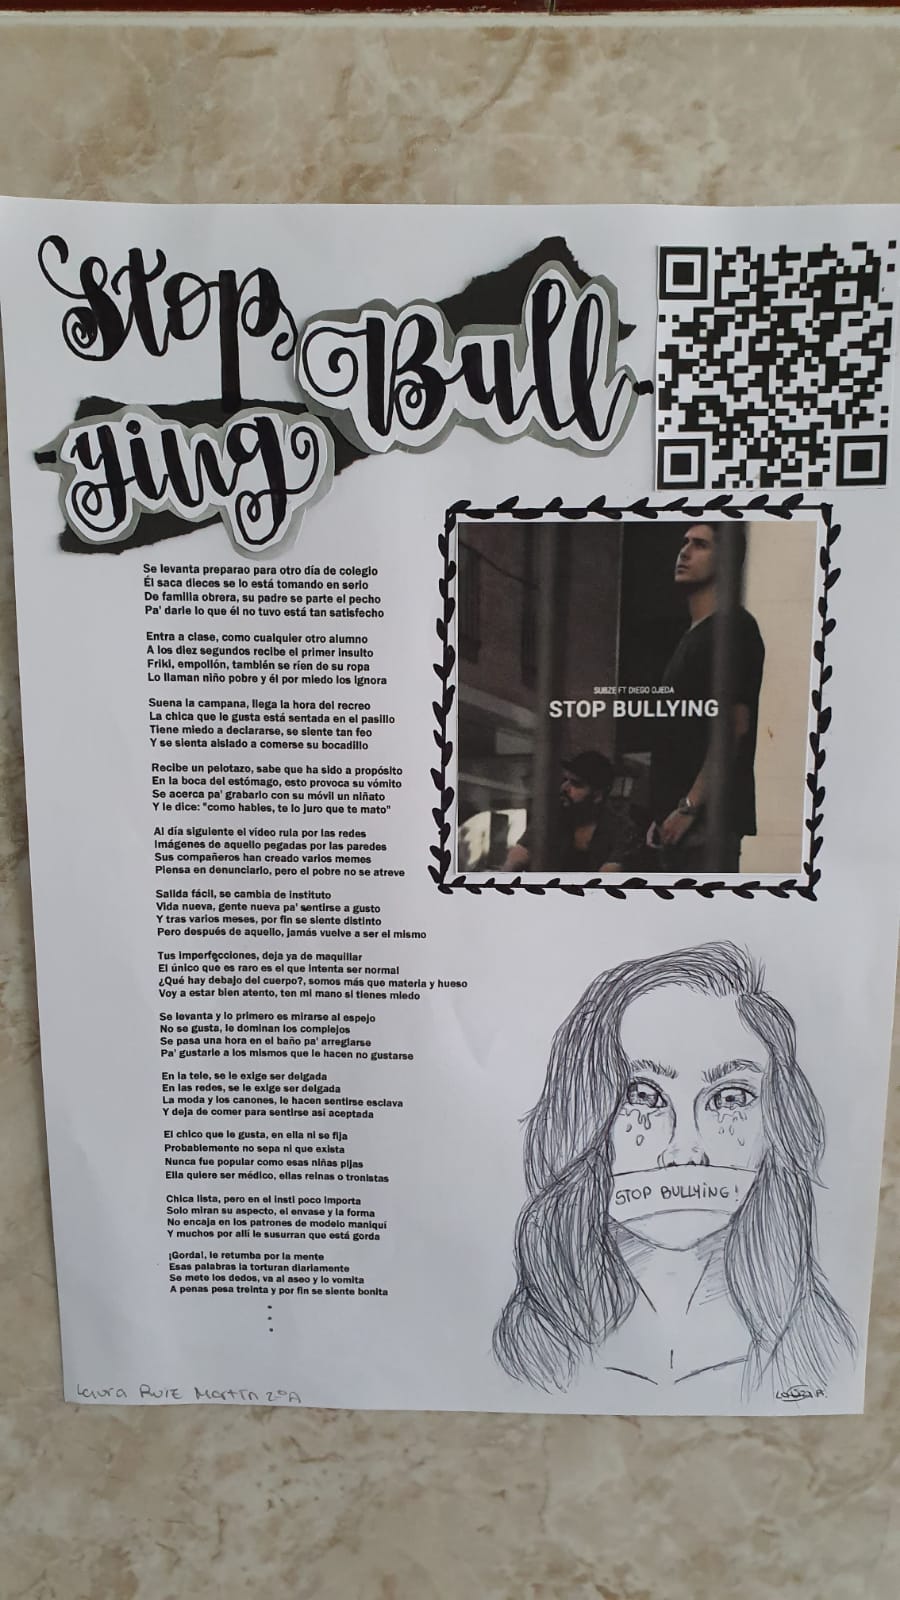 Stop
Bull-
-ying
Se levanta preparao para otro día de colegio
Él saca dieces se lo está tomando en serio
De familia obrera, su padre se parte el pecho
Pa' darle lo que él no tuvo está tan satisfecho
Entra a clase, como cualquier otro alumno
A los diez segundos recibe el primer insulto
Friki, empollón, también se ríen de su ropa
Lo llaman niño pobre y él por miedo los ignora
Suena la campana, llega la hora del recreo
La chica que le gusta está sentada en el pasillo
Tiene miedo a declararse, se siente tan feo
Y se sienta aislado a comerse su bocadillo
Recibe un pelotazo, sabe que ha sido a propósito
En la boca del estómago, esto provoca su vómito
Se acerca pa' grabarlo con su móvil un niñato
Y le dice: "como hables, te lo juro que te mato"
Al día siguiente el vídeo rula por las redes
Imágenes de aquello pegadas por las paredes
Sus compañeros han creado varios memes
Piensa en denunciarlo, pero el pobre no se atreve
Salida fácil, se cambia de instituto
Vida nueva, gente nueva pa' sentirse a gusto
Y tras varios meses, por fin se siente distinto
Pero después de aquello, jamás vuelve a ser el mismo
Tus imperfecciones, deja ya de maquillar
El único que es raro es el que intenta ser normal
¿Qué hay debajo del cuerpo?, somos más que materia y hueso
Voy a estar bien atento, ten mi mano si tienes miedo
Se levanta y lo primero es mirarse al espejo
No se gusta, le dominan los complejos
Se pasa una hora en el baño pa' arreglarse
Pa' gustarle a los mismos que le hacen no gustarse
En la tele, se le exige ser delgada
En las redes, se le exige ser delgada
La moda y los canones, le hacen sentirse esclava
Y deja de comer para sentirse asi aceptada
El chico que le gusta, en ella ni se fija
Probablemente no sepa ni que exista
Nunca fue popular como esas niñas pijas
Ella quiere ser médico, ellas reinas o tronistas
Chica lista, pero en el insti poco importa
Solo miran su aspecto, el envase y la forma
No encaja en los patrones de modelo maniquí
Y muchos por allí le susurran que está gorda
¡Gorda!, le retumba por la mente
Esas palabras la torturan diariamente
Se mete los dedos, va al aseo y lo vomita
A penas pesa treinta y por fin se siente bonita
SUBZE FT DIEGO OJEDA
STOP BULLYING
STOP BULLYING!
Laura Ruiz Martín 2ºA